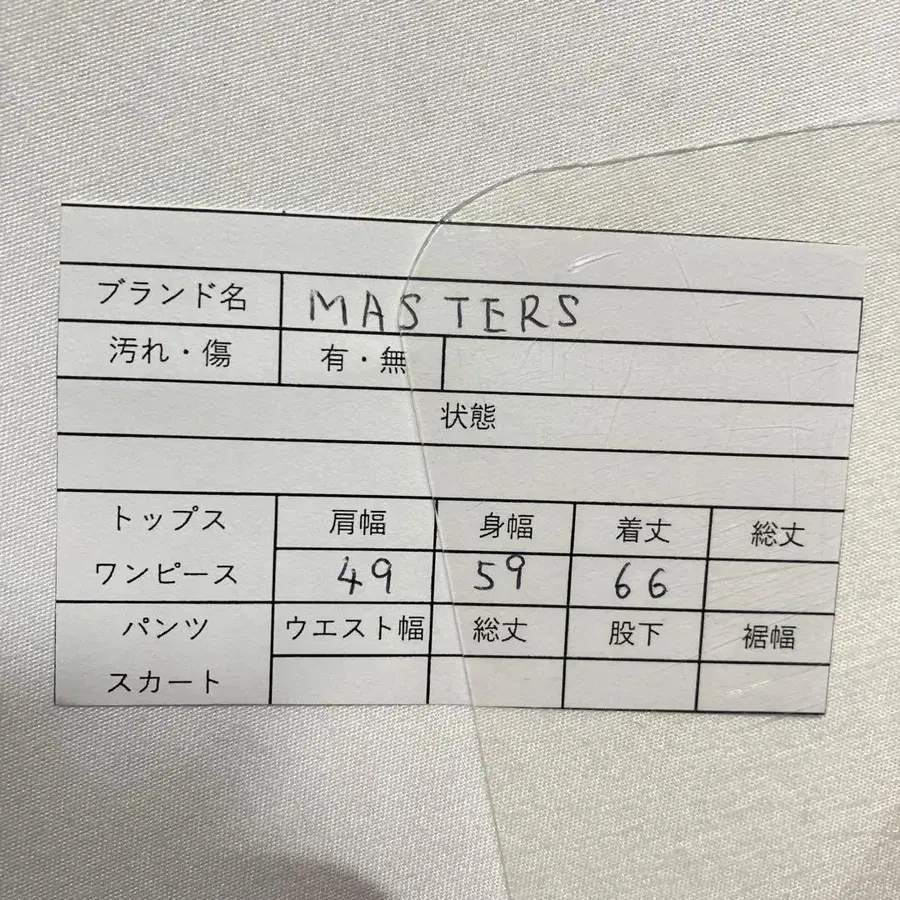 ブランド名 MASTERS
汚れ・傷 有・無
状態
トップス 肩幅 身幅 着丈 総丈
ワンピース 49 59 66
パンツ ウエスト幅 総丈 股下 裾幅
スカート